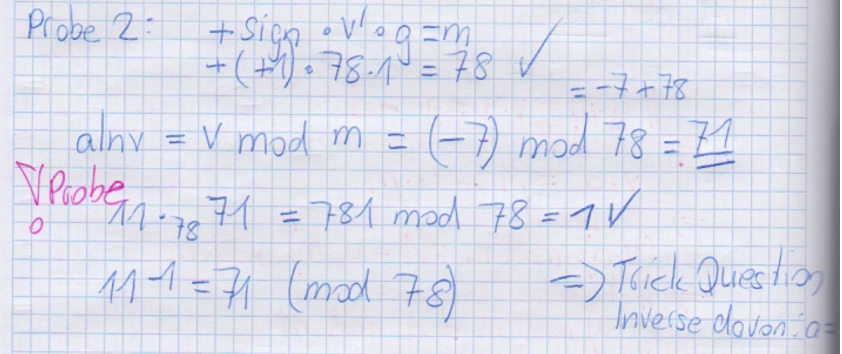 Probe 2: + sign · v' · g = m
+ (+1) · 78 · 1 = 78 ✓
= -7 + 78
aInv = v mod m = (-7) mod 78 = 71
∇ Probe
11 ·₇₈ 71 = 781 mod 78 = 1 ✓
11⁻¹ = 71 (mod 78) => Trick Question
Inverse davon: a=